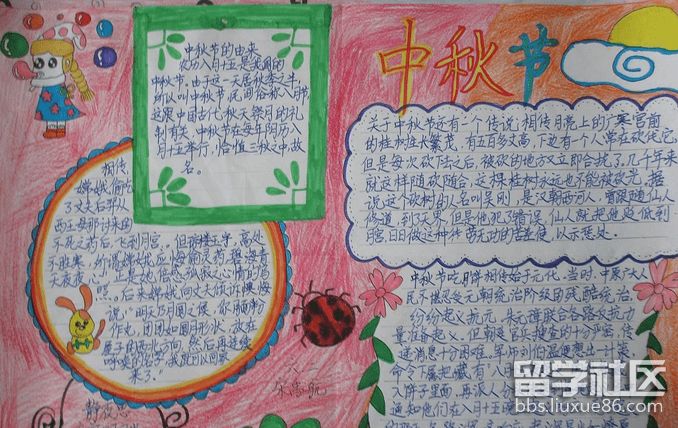 中秋节
中秋节的由来
农历八月十五是我国的
中秋节。由于这一天居秋季之半
所以叫中秋节，民间俗称八月节
这跟中国古代秋天祭月的礼
制有关。中秋节在每年阴历八
月十五举行，恰值三秋之中，故
名。
关于中秋节还有一个传说：相传月亮上的广寒宫前
的桂树生长繁茂，有五百多丈高，下边有一个人常在砍伐它，
但是每次砍去之后，被砍的地方又立即合拢了，几千年来
就这样随砍随合，这棵桂树永远也不能被砍光。据
说这个砍树的人名叫吴刚，是汉朝西河人，曾跟随仙人
修道，到了天界，但是他犯了错误，仙人就把他贬低到
月宫，日日做这种徒劳无功的苦差使，以示惩处。
相传，
嫦娥偷吃
了丈夫后羿从
西王母那讨来的
不死之药后，飞到月宫。但琼楼玉宇，高处
不胜寒，所谓嫦娥应悔偷灵药，碧海青
天夜夜心，正是她倍感孤寂之心情的写
照。后来嫦娥向丈夫倾诉懊悔
说："明天乃月圆之候，你用面粉
作丸，团团如圆月形状，放在
屋子的西北方向，然后再连续
呼唤我的名字，我就可以回家
来了。"
中秋节吃月饼相传始于元代。当时，中原广大人
民不堪忍受元朝统治阶级的残酷统治，
纷纷起义抗元。朱元璋联合各路反抗力
量准备起义。但朝庭官兵搜查的十分严密，传
递消息十分困难。军师刘伯温便想出一计策
命令下属把藏有"八
入饼子里面，再派人
通知他们在八月十五
留学社区
bbs.liuxue86.com